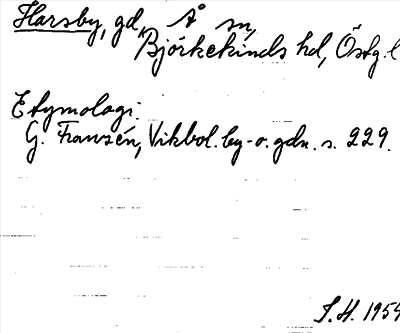 Harsby, gd, Å sn,
Björkekinds hd, Östg. l
Etymologi:
G. Franzén, Vikbol. by- o. gdn. s. 229.
S.H. 1954